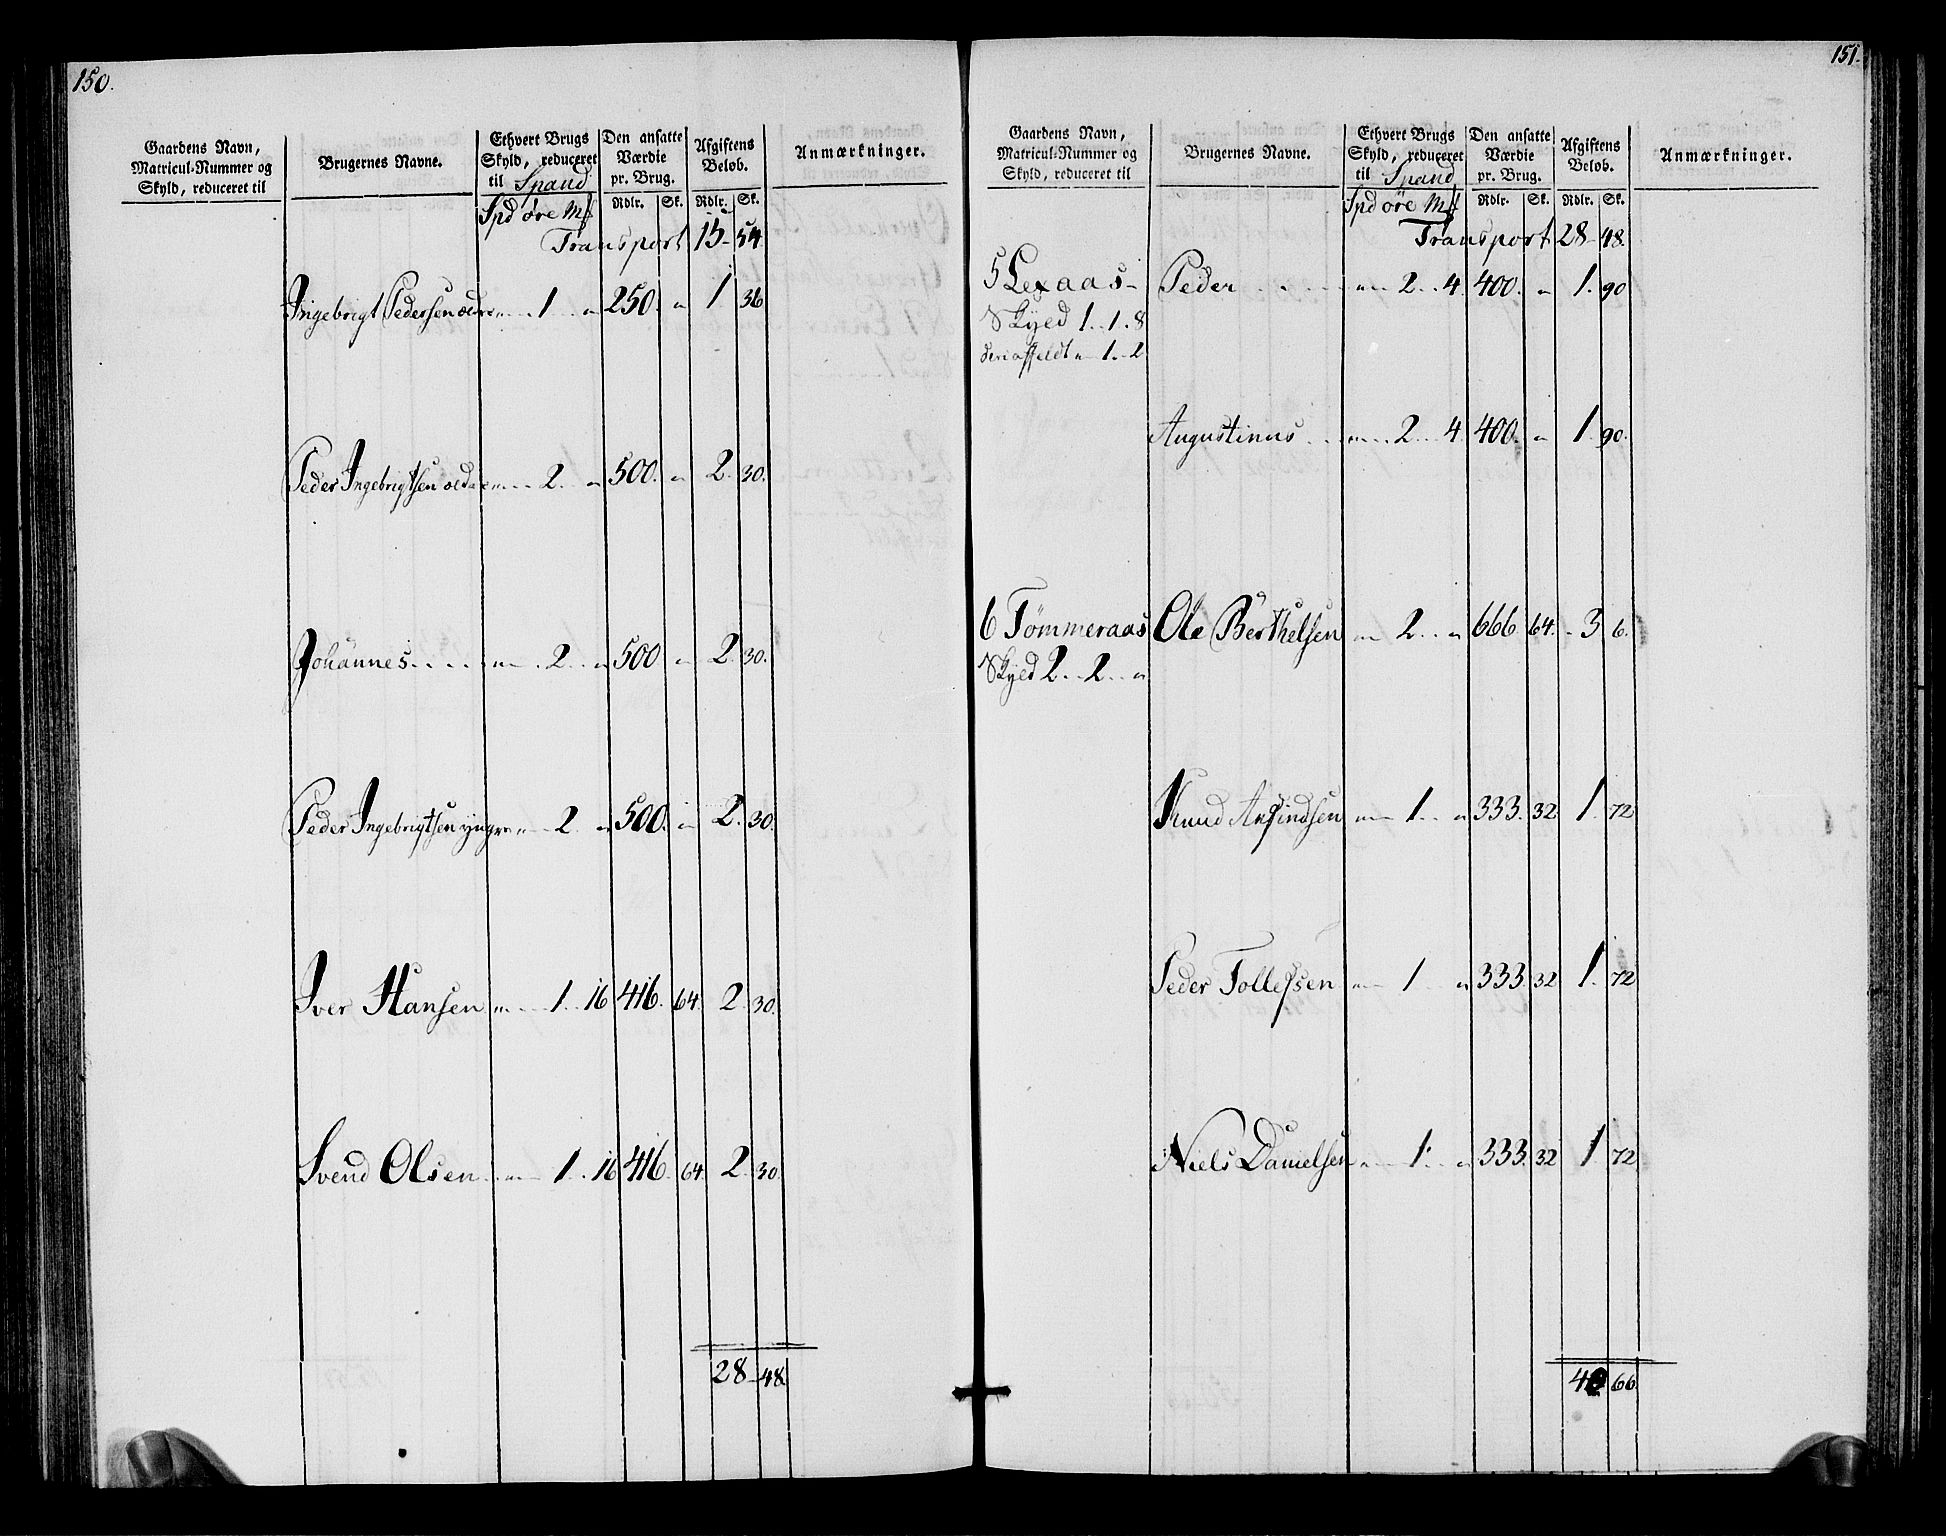 150.
Gaardens Navn,
Matricul-Nummer og
Skyld, reduceret til
Brugernes Navne.
Ethvert Brugs
Skyld, reduceret
til Spand
Spd öre Mf
Den ansatte
Værdie
pr. Brug.
Rdlr. Sk.
Afgiftens
Beløb.
Rdlr. Sk.
Anmærkninger.
Transport 15 - 54
Ingebrigt Pedersen ældre „ 1 „ 250. „ 1 36
Peder Ingebrigtsen ældre „ 2. „ 500. „ 2. 30.
Johannes „ 2. „ 500 „ 2. 30.
Peder Ingebrigtsen yngre „ 2. „ 500. „ 2. 30.
Iver Hansen „ 1. 16 416. 64. 2. 30.
Svend Olsen „ 1. 16 416. 64. 2. 30.
28 - 48
151.
Gaardens Navn,
Matricul-Nummer og
Skyld, reduceret til
Brugernes Navne.
Ethvert Brugs
Skyld, reduceret
til Spand
Spd öre Mf
Den ansatte
Værdie
pr. Brug.
Rdlr. Sk.
Afgiftens
Beløb.
Rdlr. Sk.
Anmærkninger.
Transport 28 - 48.
5 Lexaas - Peder „ 2. 4. 400. „ 1. 90
Skyld 1. 1. 8
deriaffeldt „ 1. 2
Augustinus „ 2. 4. 400. „ 1. 90.
6 Tömmeraas Ole Berthelsen „ 2. „ 666. 64. 3 6.
Skyld 2. 2. „
Knud Arfindsen „ 1. „ 333. 32 1. 72
Peder Tollefsen „ 1. „ 333. 32 1. 72
Niels Danielsen „ 1. „ 333. 32 1 72
66.